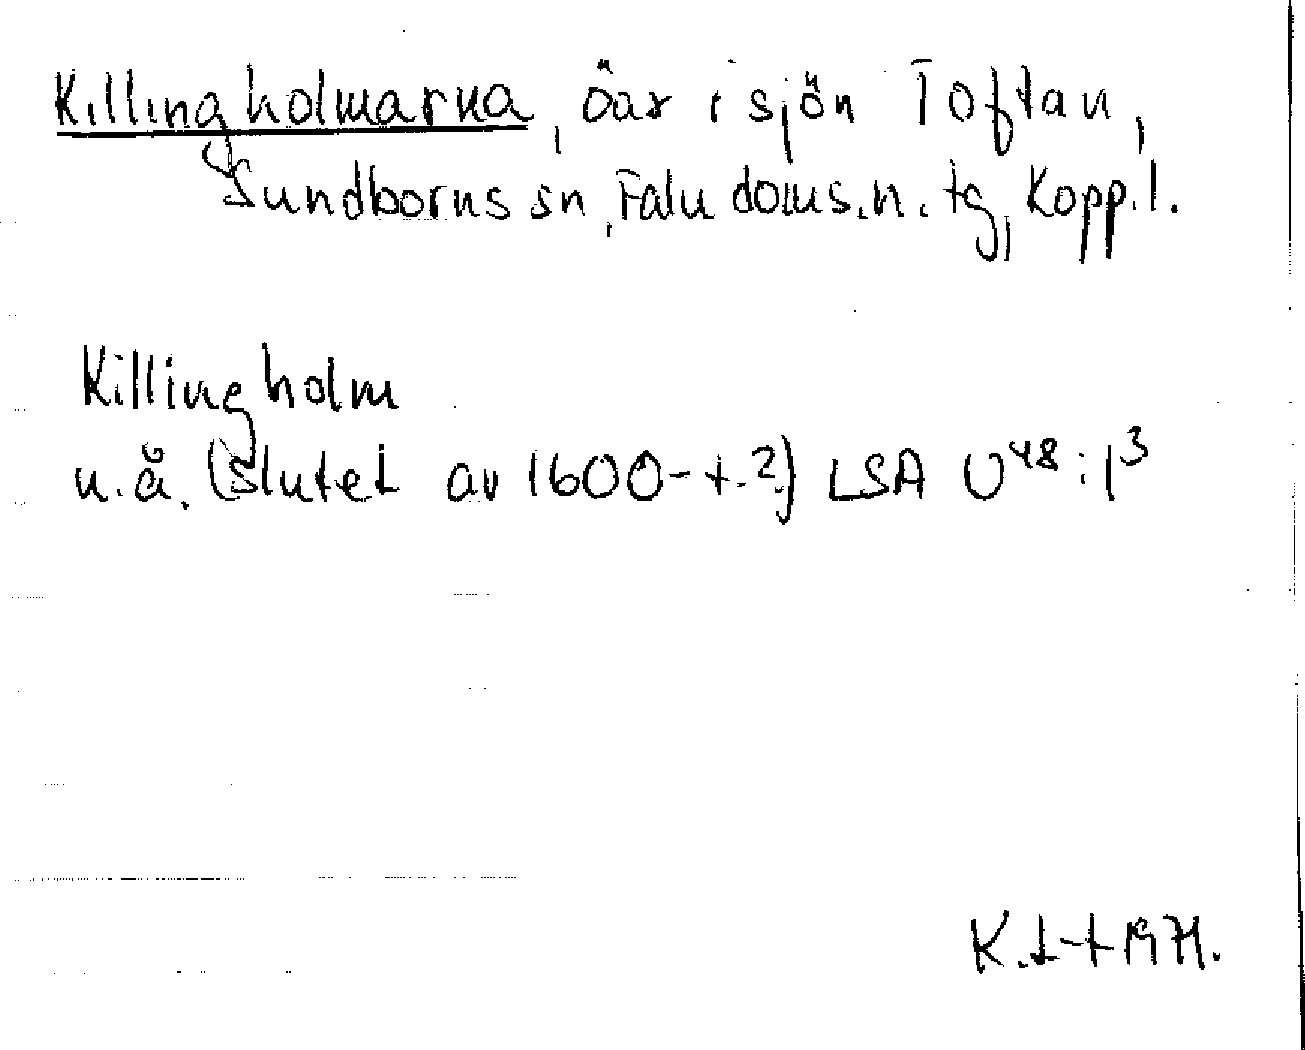 Killingholmarna, öar i sjön Toftan,
Sundborns sn, Falu doms.n. tg, Kopp.l.
Killingholm
u.å. (slutet av 1600-t.?) LSA U48:13
1971.